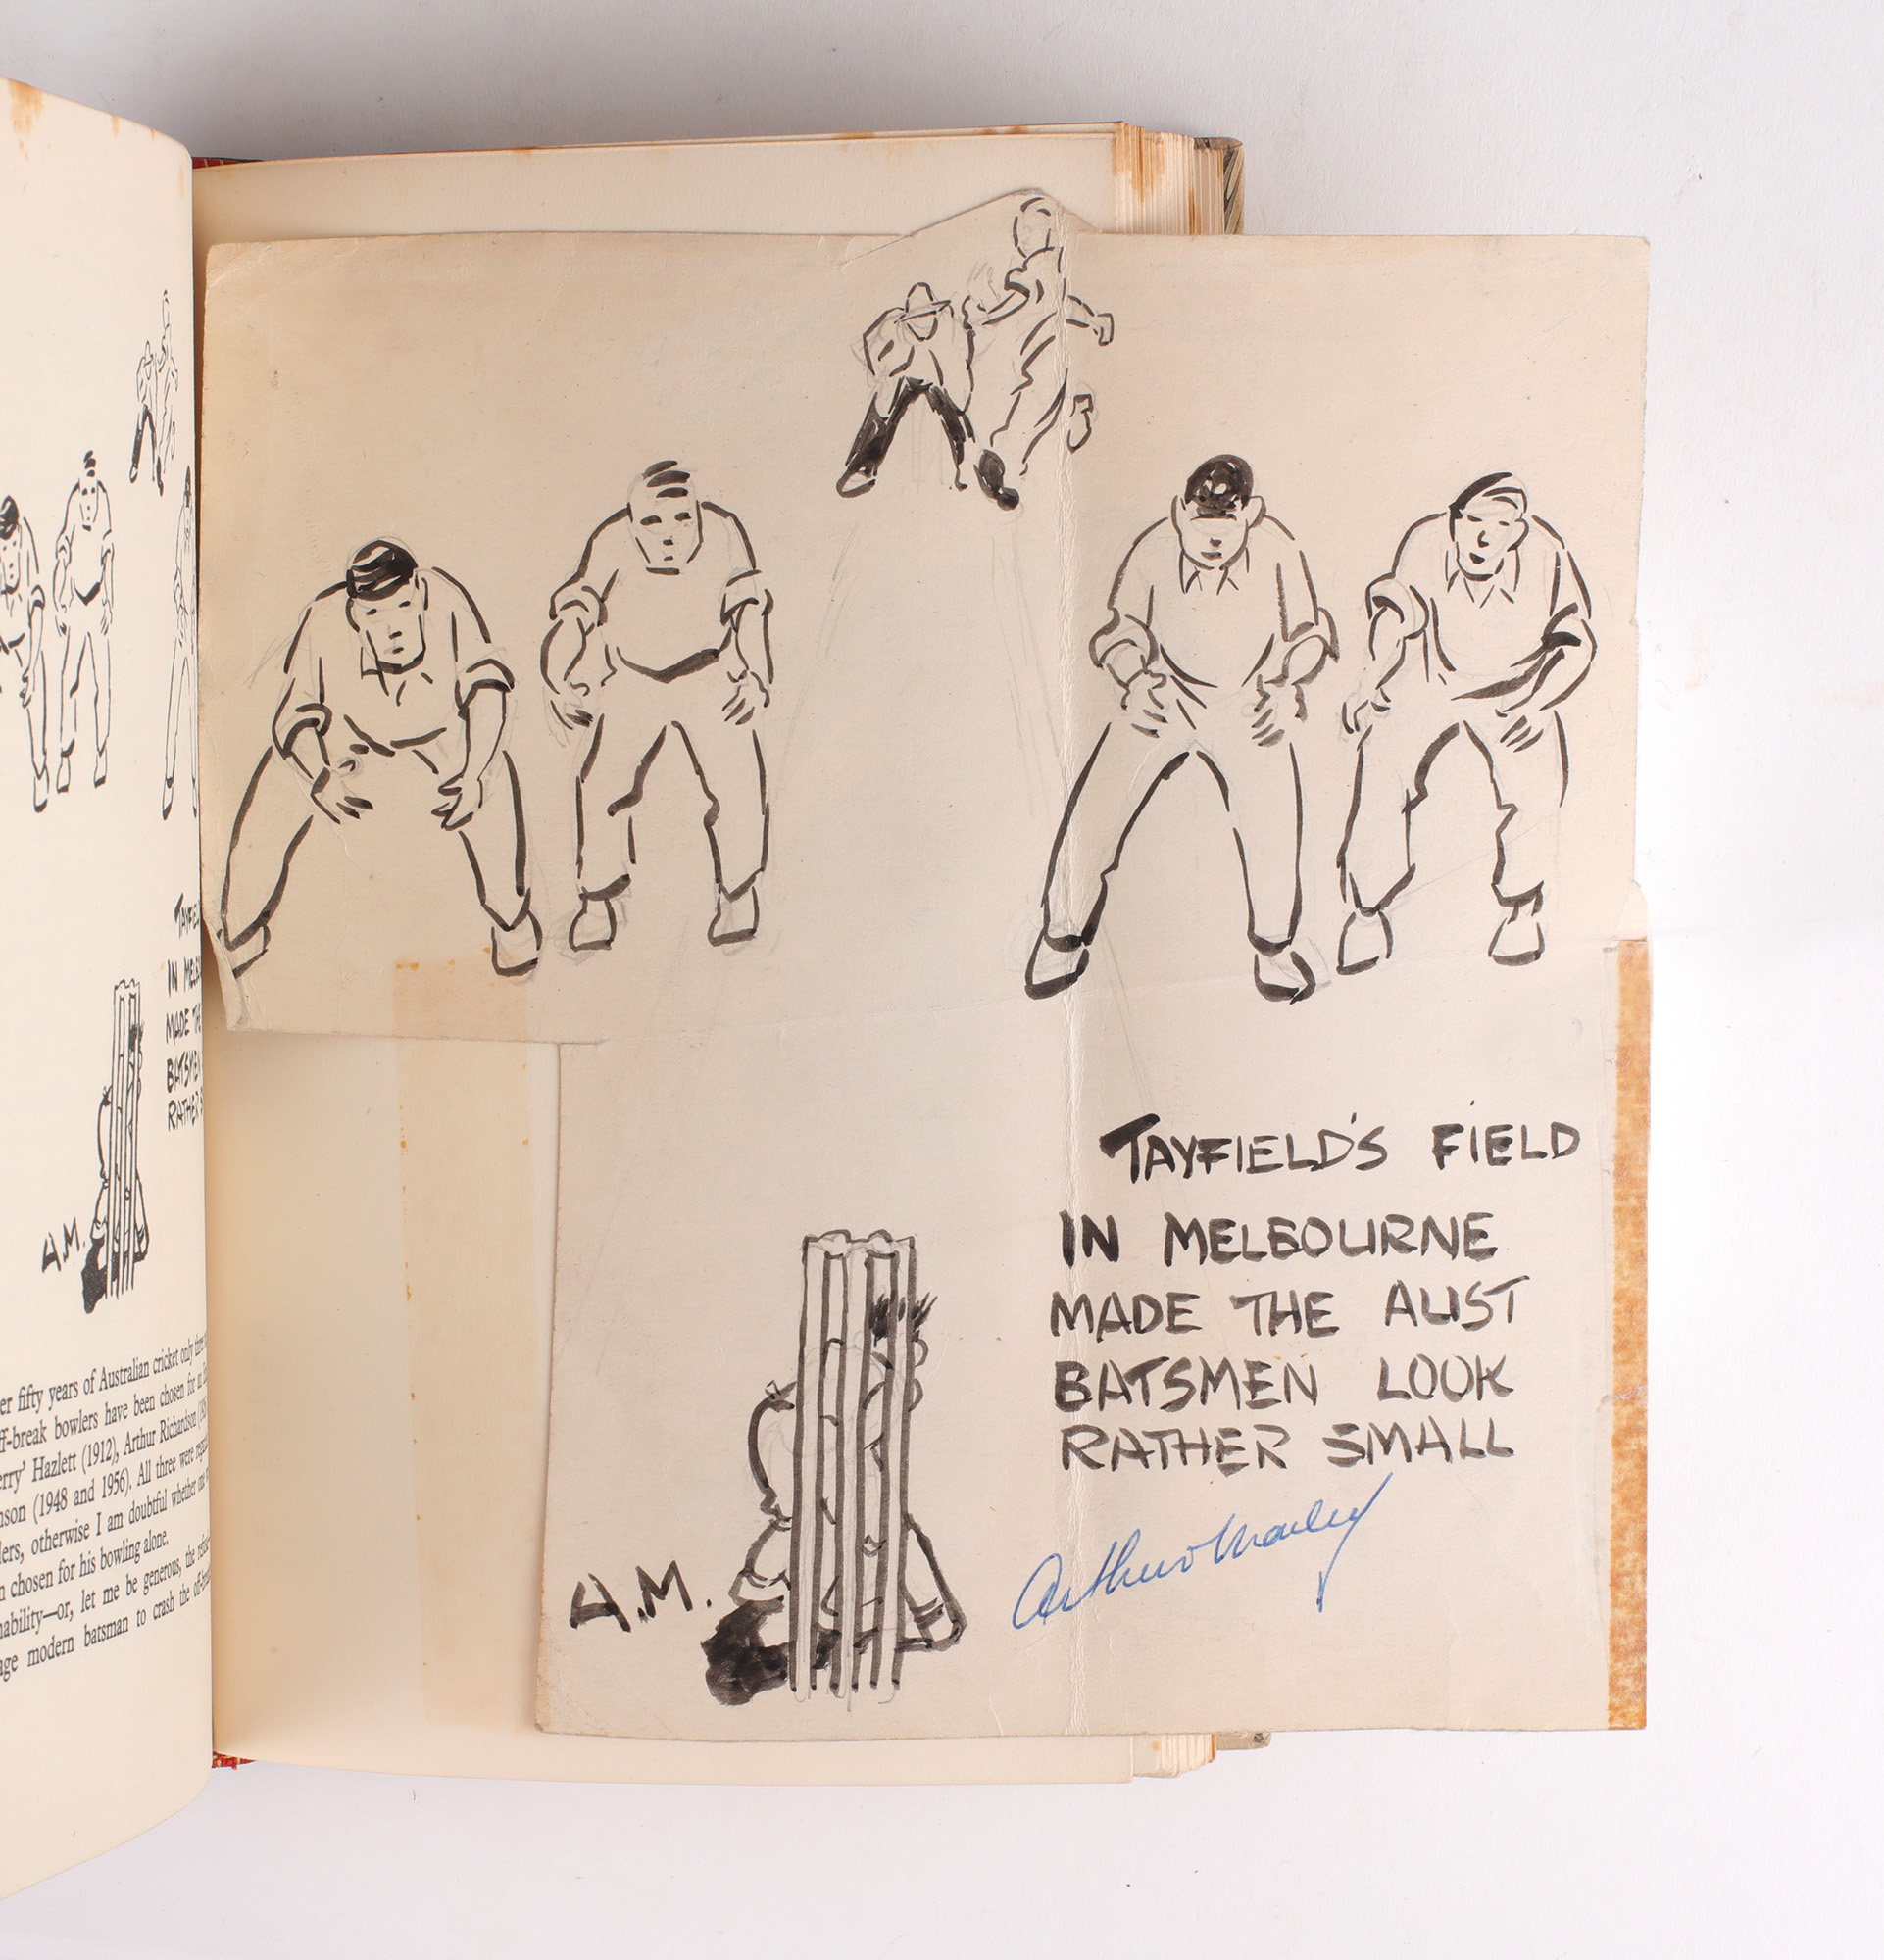 TAYFIEL
IN MELB
MADE THE
BATSMEN
RATHER S
A.M.
er fifty years of Australian cricket only three
ff-break bowlers have been chosen for an
erry' Hazlett (1912), Arthur Richardson (192
nson (1948 and 1956). All three were
lers, otherwise I am doubtful whether
n chosen for his bowling alone.
nability—or, let me be generous, the
age modern batsman to crash the off-
TAYFIELD'S FIELD
IN MELBOURNE
MADE THE AUST
BATSMEN LOOK
RATHER SMALL
A.M.
Arthur Mailey